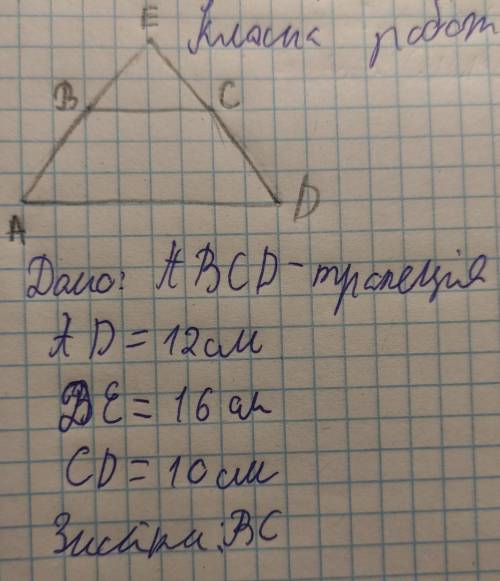 E
Класна робот
B C
A D
Дано: ABCD - трапеція
AD = 12 см
DE = 16 см
CD = 10 см
Знайти: BC